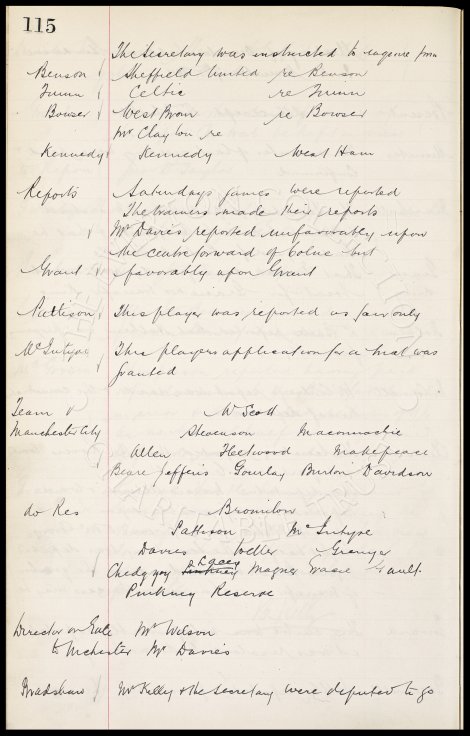 115
The Secretary was instructed to enquire from
Benson Sheffield United re Benson
Quinn Celtic re Quinn
Bowser West Brom re Bowser
Mr Clayton re
Kennedy Kennedy West Ham
Reports Saturdays games were reported
The trainers made their reports
Mr Davies reported unfavorably upon
the centre forward of Colne but
Grant favorably upon Grant
Pattison This player was reported as fair only
McIntyre This players application for a trial was
granted
Team v W Scott
Manchester City Stevenson Maconnachie
Allan Fleetwood Makepeace
Beare Jefferis Gourlay Burton Davidson
do Res Bromilow
Pattison McIntyre
Davies Weller Grenyer
Lacey
Chedgzoy Pinkney Magner Gault
Pinkney Reserve
Director on Gate Mr Wilson
to Mchester Mr Davies
Bradshaw Mr Kelly & the Secretary were deputed to go